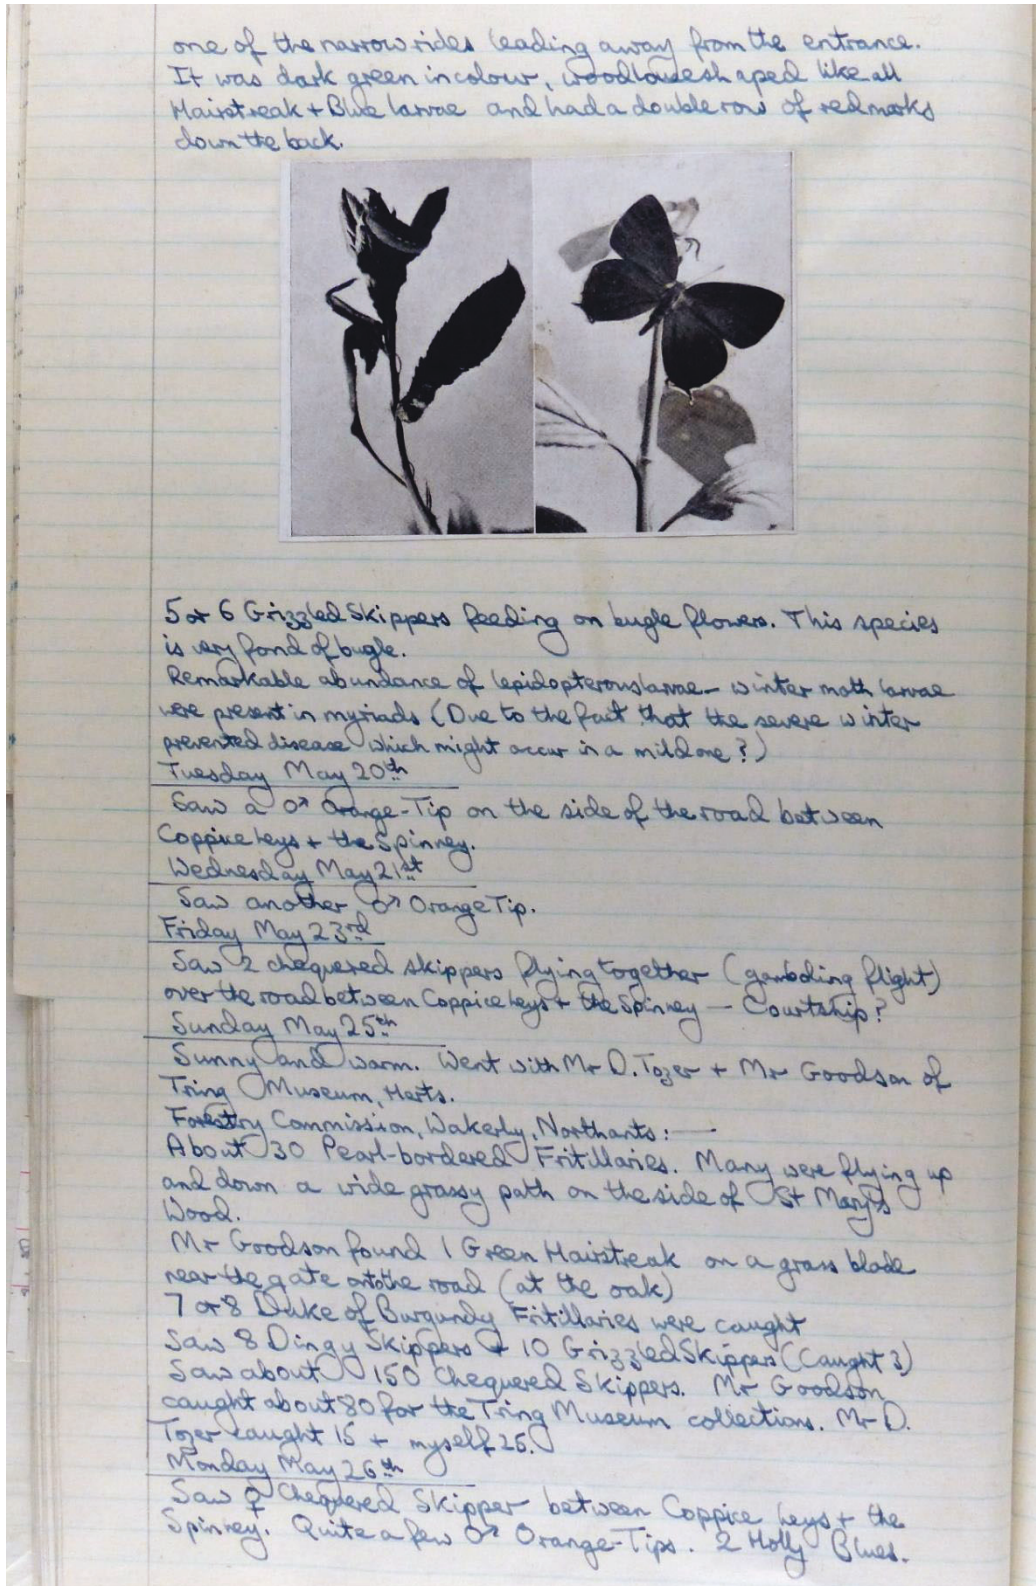 one of the narrow rides leading away from the entrance.
It was dark green in colour, woodlouse shaped like all
Hairstreak + Blue larvae and had a double row of red marks
down the back.
5 or 6 Grizzled Skippers feeding on bugle flowers. This species
is very fond of bugle.
Remarkable abundance of lepidopterous larvae - winter moth larvae
were present in myriads (Due to the fact that the severe winter
prevented disease which might occur in a mild one?)
Tuesday May 20th
Saw a ♂ Orange-Tip on the side of the road between
Coppice Leys + the Spinney.
Wednesday May 21st
Saw another ♂ Orange Tip.
Friday May 23rd
Saw 2 chequered skippers flying together (gamboling flight)
over the road between Coppice Leys + the Spinney — Courtship?
Sunday May 25th
Sunny and warm. Went with Mr D. Tozer + Mr Goodson of
Tring Museum, Herts.
Forestry Commission, Wakerly, Northants:—
About 30 Pearl-bordered Fritillaries. Many were flying up
and down a wide grassy path on the side of St Mary's
Wood.
Mr Goodson found 1 Green Hairstreak on a grass blade
near the gate onto the road (at the oak)
7 or 8 Duke of Burgundy Fritillaries were caught
Saw 8 Dingy Skippers + 10 Grizzled Skippers (Caught 3)
Saw about 150 Chequered Skippers. Mr Goodson
caught about 80 for the Tring Museum collections. Mr D.
Tozer caught 15 + myself 25.
Monday May 26th
Saw ♀ Chequered Skipper between Coppice Leys + the
Spinney. Quite a few ♂ Orange-Tips. 2 Holly Blues.